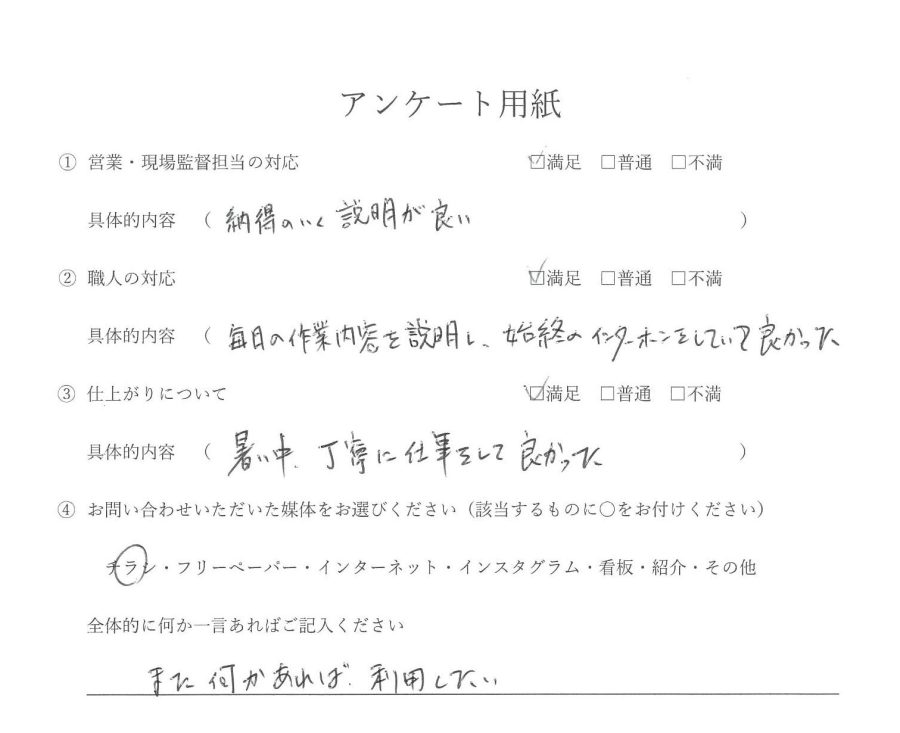 アンケート用紙
① 営業・現場監督担当の対応 ☑満足 □普通 □不満
具体的内容 （ 納得のいく説明が良い ）
② 職人の対応 ☑満足 □普通 □不満
具体的内容 （ 毎日の作業内容を説明し、始終のインターホンをしていて良かった
③ 仕上がりについて ☑満足 □普通 □不満
具体的内容 （ 暑い中、丁寧に仕事をして良かった ）
④ お問い合わせいただいた媒体をお選びください（該当するものに〇をお付けください）
チラシ・フリーペーパー・インターネット・インスタグラム・看板・紹介・その他
全体的に何か一言あればご記入ください
また何かあれば、利用したい